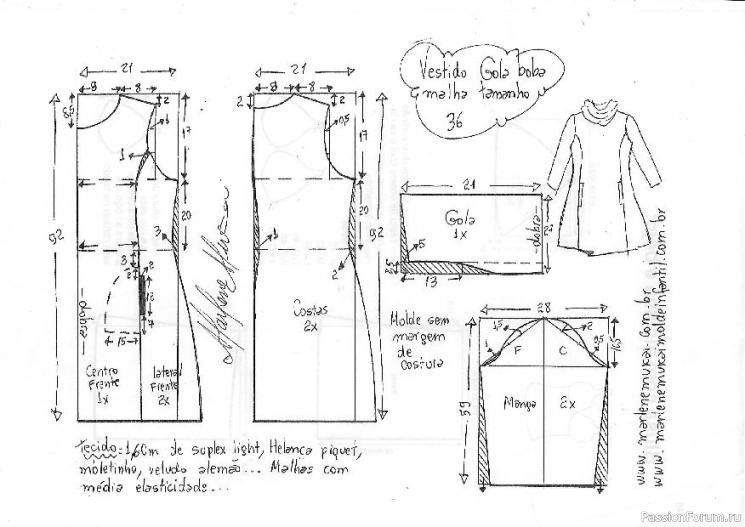 Vestido Gola boba
malha tamanho
36
21
8 8
2
8,5
1
17
1
20
92
3
3
2
2
12
15
dobra
Centro
Frente
1x
lateral
Frente
2x
21
8 8
2
2
0,5
17
20
92
1
2
Costas
2x
21
Gola
1x
dobra
5
13
Molde sem
margem
de
costura
28
1,5
2
1
0,5
F
C
59
Manga
2x
www.marlenemukai.com.br
www.marlenemukaimoldeinfantil.com.br
Tecido: 1,60m de suplex light, Helanca piquet,
moletinho, veludo alemão... Malhas com
média elasticidade...
PassionForum.ru